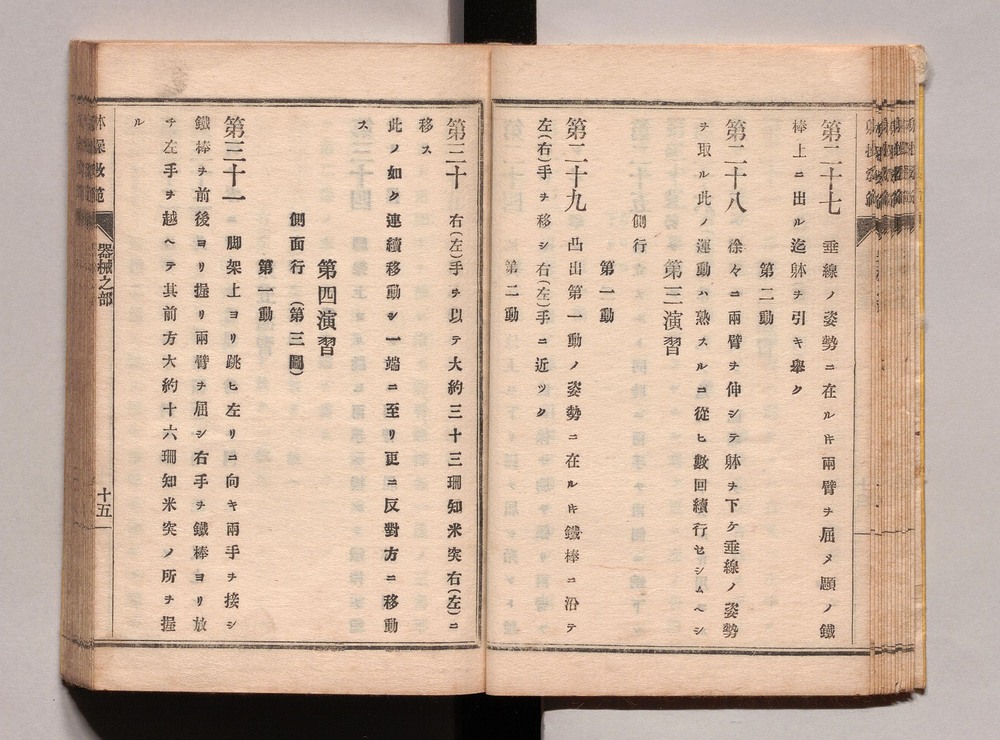 第二十七　垂線ノ姿勢ニ在ルㇳキ兩臂ヲ屈メ頤ノ鐵
棒上ニ出ル迄躰ヲ引キ擧ク
第二動
第二十八　徐々ニ兩臂ヲ伸シテ躰ヲ下ケ垂線ノ姿勢
ヲ取ル此ノ運動ハ熟スルニ從ヒ數回續行セシムヘシ
第三演習
側行
第一動
第二十九　凸出第一動ノ姿勢ニ在ルㇳキ鐵棒ニ沿テ
左(右)手ヲ移シ右(左)手ニ近ツク
第二動
第三十　右(左)手ヲ以テ大約三十三珊知米突右(左)ニ
移ス
此ノ如ク連續移動シ一端ニ至リ更ニ反對方ニ移動
ス
第四演習
側面行　(第三圖)
第一動
第三十一　脚架上ヨリ跳ヒ左リニ向キ兩手ヲ接シ
鐵棒ヲ前後ヨリ握リ兩臂ヲ屈シ右手ヲ鐵棒ヨリ放
チ左手ヲ越ヘテ其前方大約十六珊知米突ノ所ヲ握
ル
体操教範
器械之部
十五